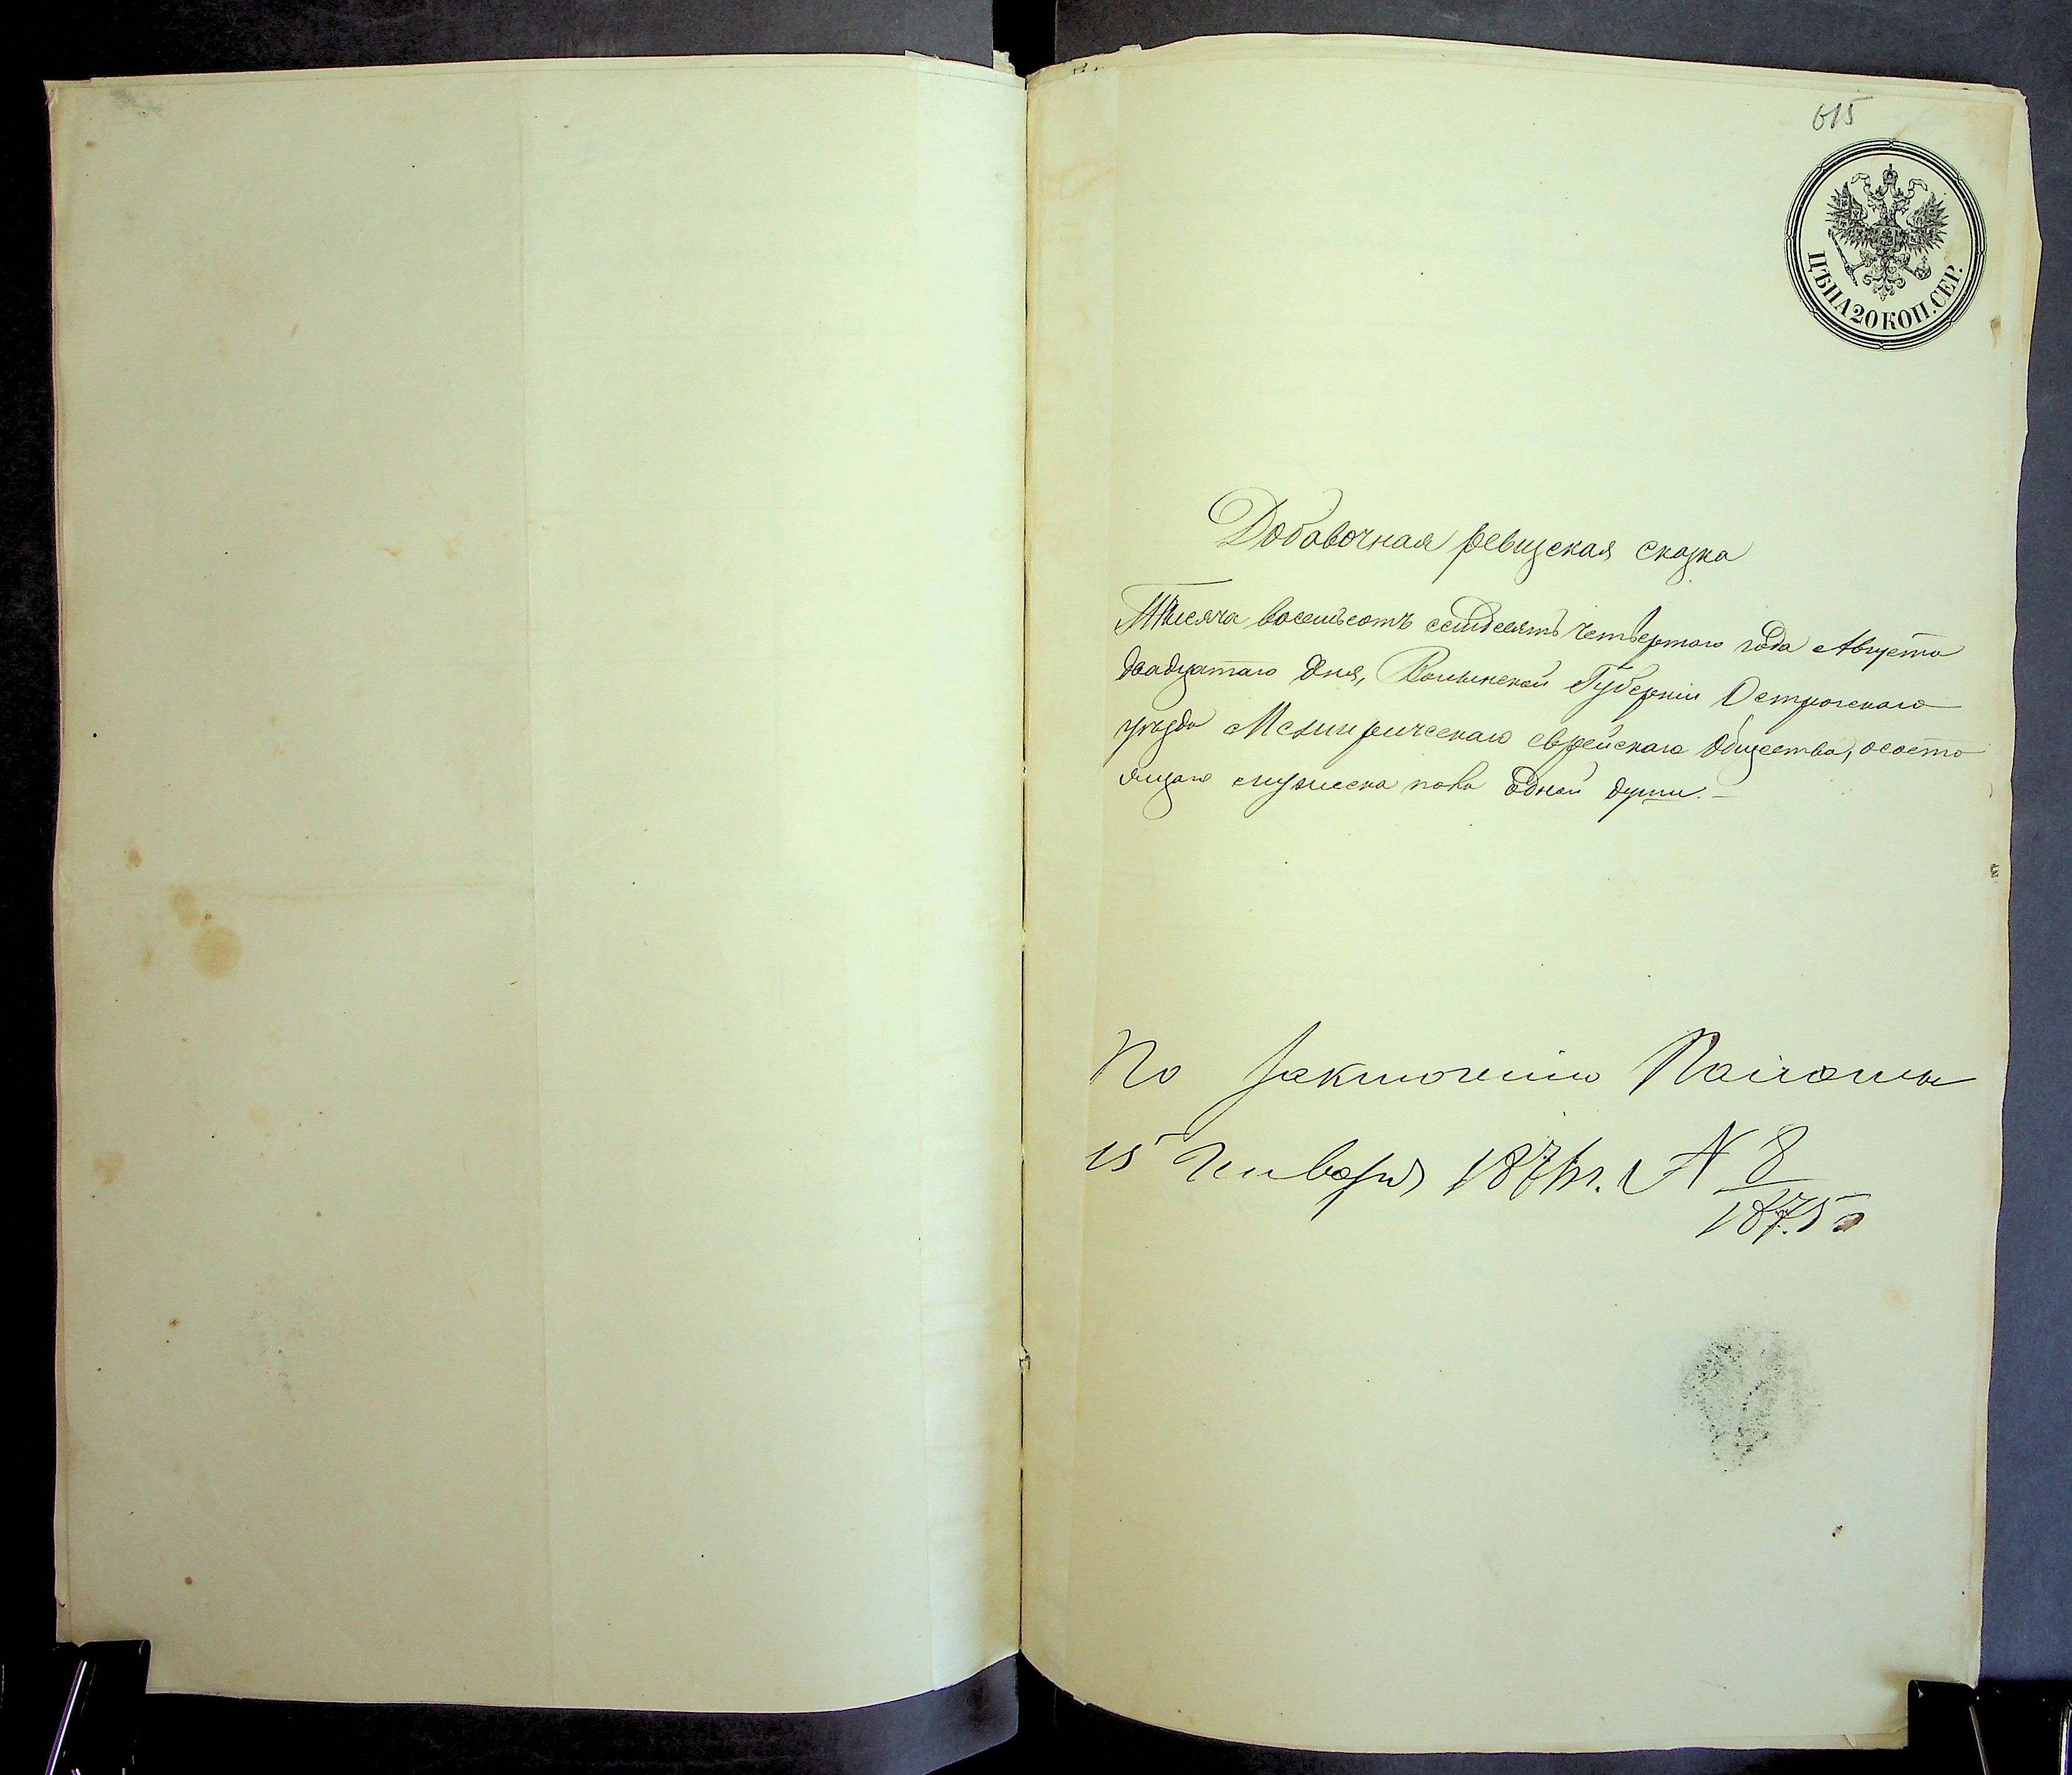 615
ЦѢНА 20 КОП. СЕР.
Добавочная ревизская сказка
Тысяча восемьсотъ семдесятъ четвертого года Августа
двадцатаго дня, Волынской Губернiи Острожскаго
уѣзда Межиричскаго еврейскаго общества, ососто
ящаго мужеска пола одной души.–
По заключенiю Палаты
15 Января 187 г. N 8
1875